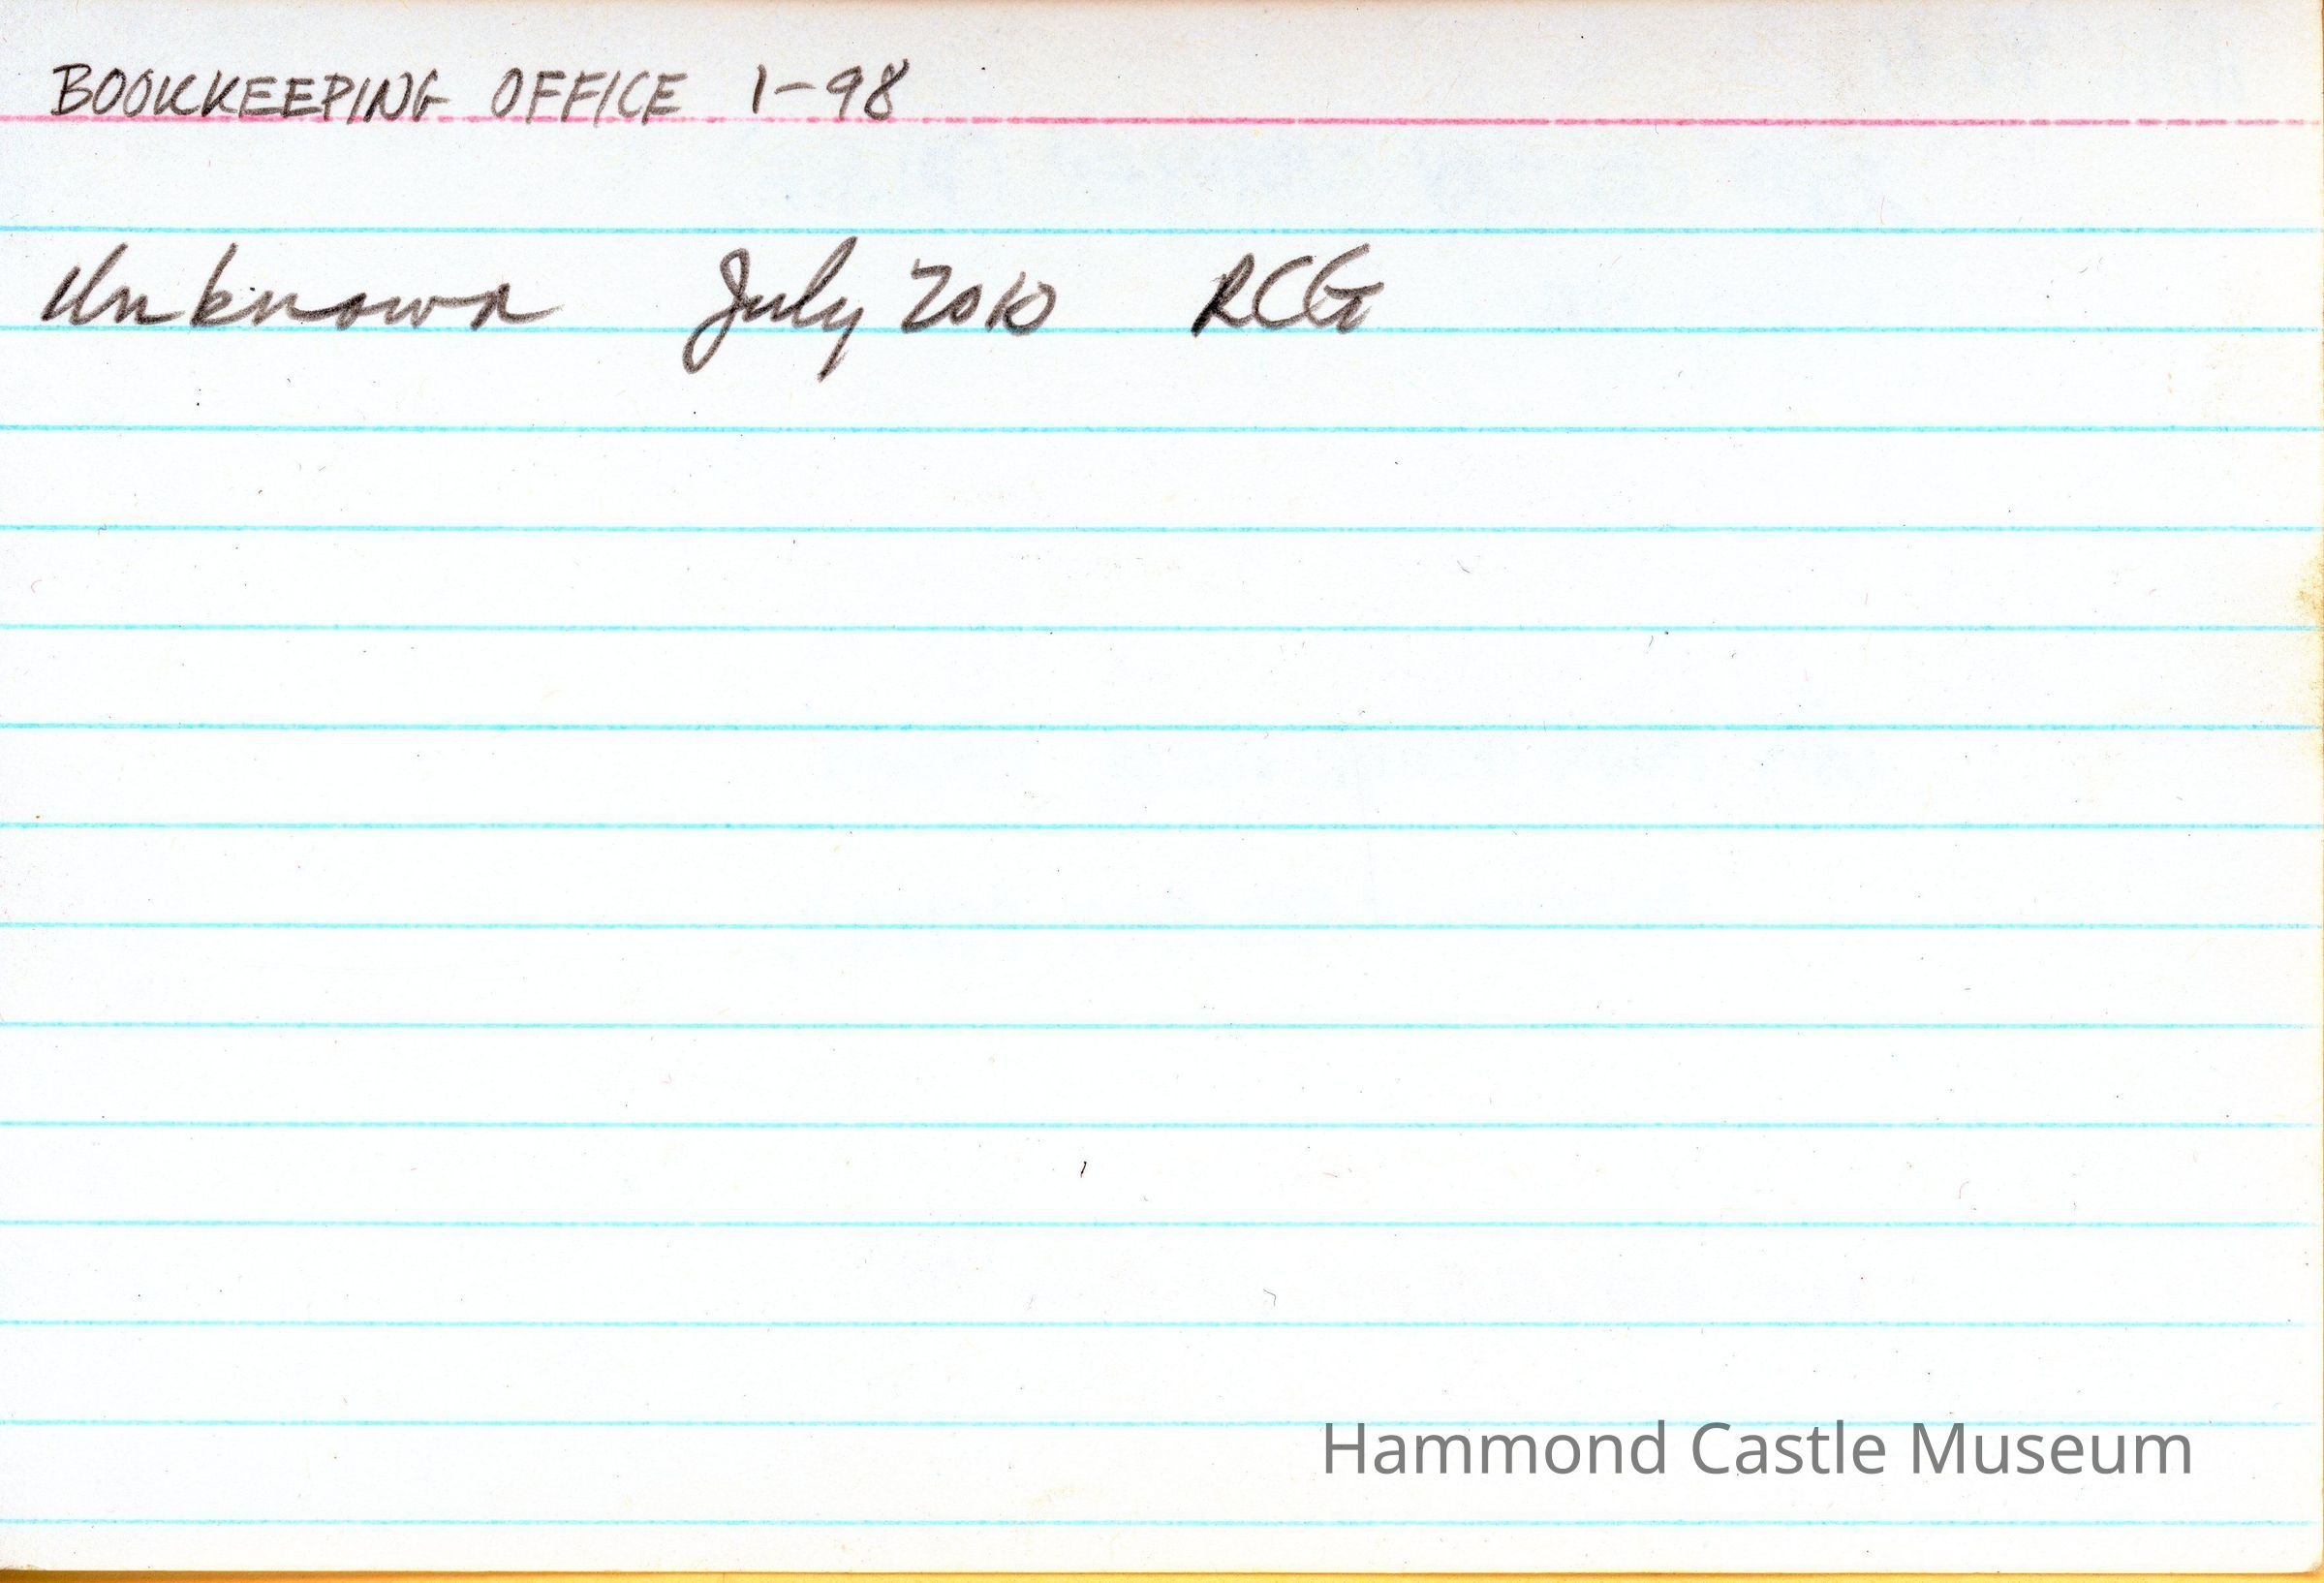 BOOKKEEPING OFFICE 1-98
Unknown July 2010 RCG
Hammond Castle Museum